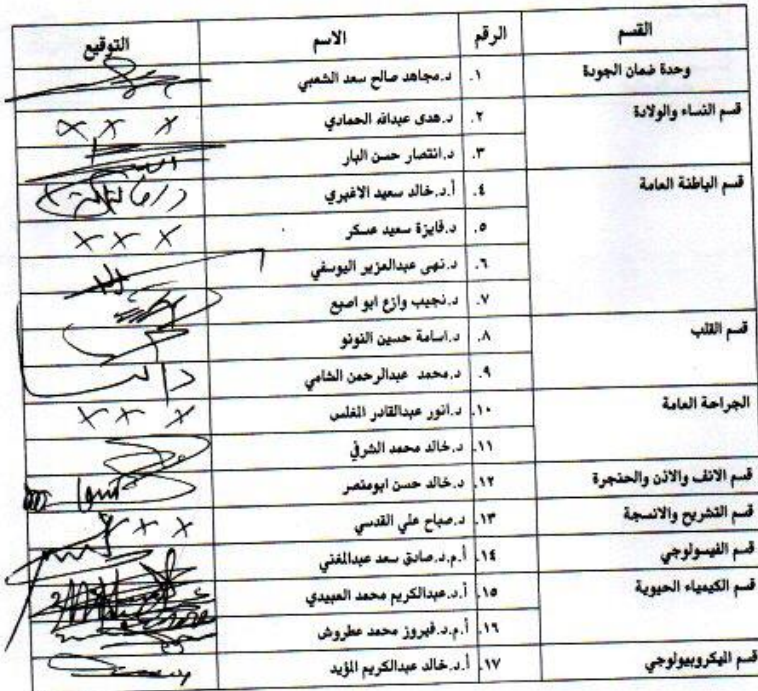 القسم الرقم الاسم التوقيع
وحدة ضمان الجودة ١. د.مجاهد صالح سعد الشعبي
قسم النساء والولادة ٢. د.هدى عبدالله الحمادي x x x
٣. د.انتصار حسن البار
قسم الباطنة العامة ٤. أ.د.خالد سعيد الاغبري
٥. د.فايزة سعيد عسكر x x x
٦. د.نهى عبدالعزيز اليوسفي
٧. د.نجيب وازع ابو اصبع
قسم القلب ٨. د.اسامة حسين النونو
٩. د.محمد عبدالرحمن الشامي
الجراحة العامة ١٠. د.انور عبدالقادر المغلس x x x
١١. د.خالد محمد الشرفي
قسم الانف والاذن والحنجرة ١٢. د.خالد حسن ابومنصر
قسم التشريح والانسجة ١٣. د.صباح علي القدسي x x x
قسم الفيسولوجي ١٤. أ.م.د.صادق سعد عبدالمغني
قسم الكيمياء الحيوية ١٥. أ.د.عبدالكريم محمد العبيدي
١٦. أ.م.د.فيروز محمد عطروش
قسم الميكروبيولوجي ١٧. أ.د.خالد عبدالكريم المؤيد